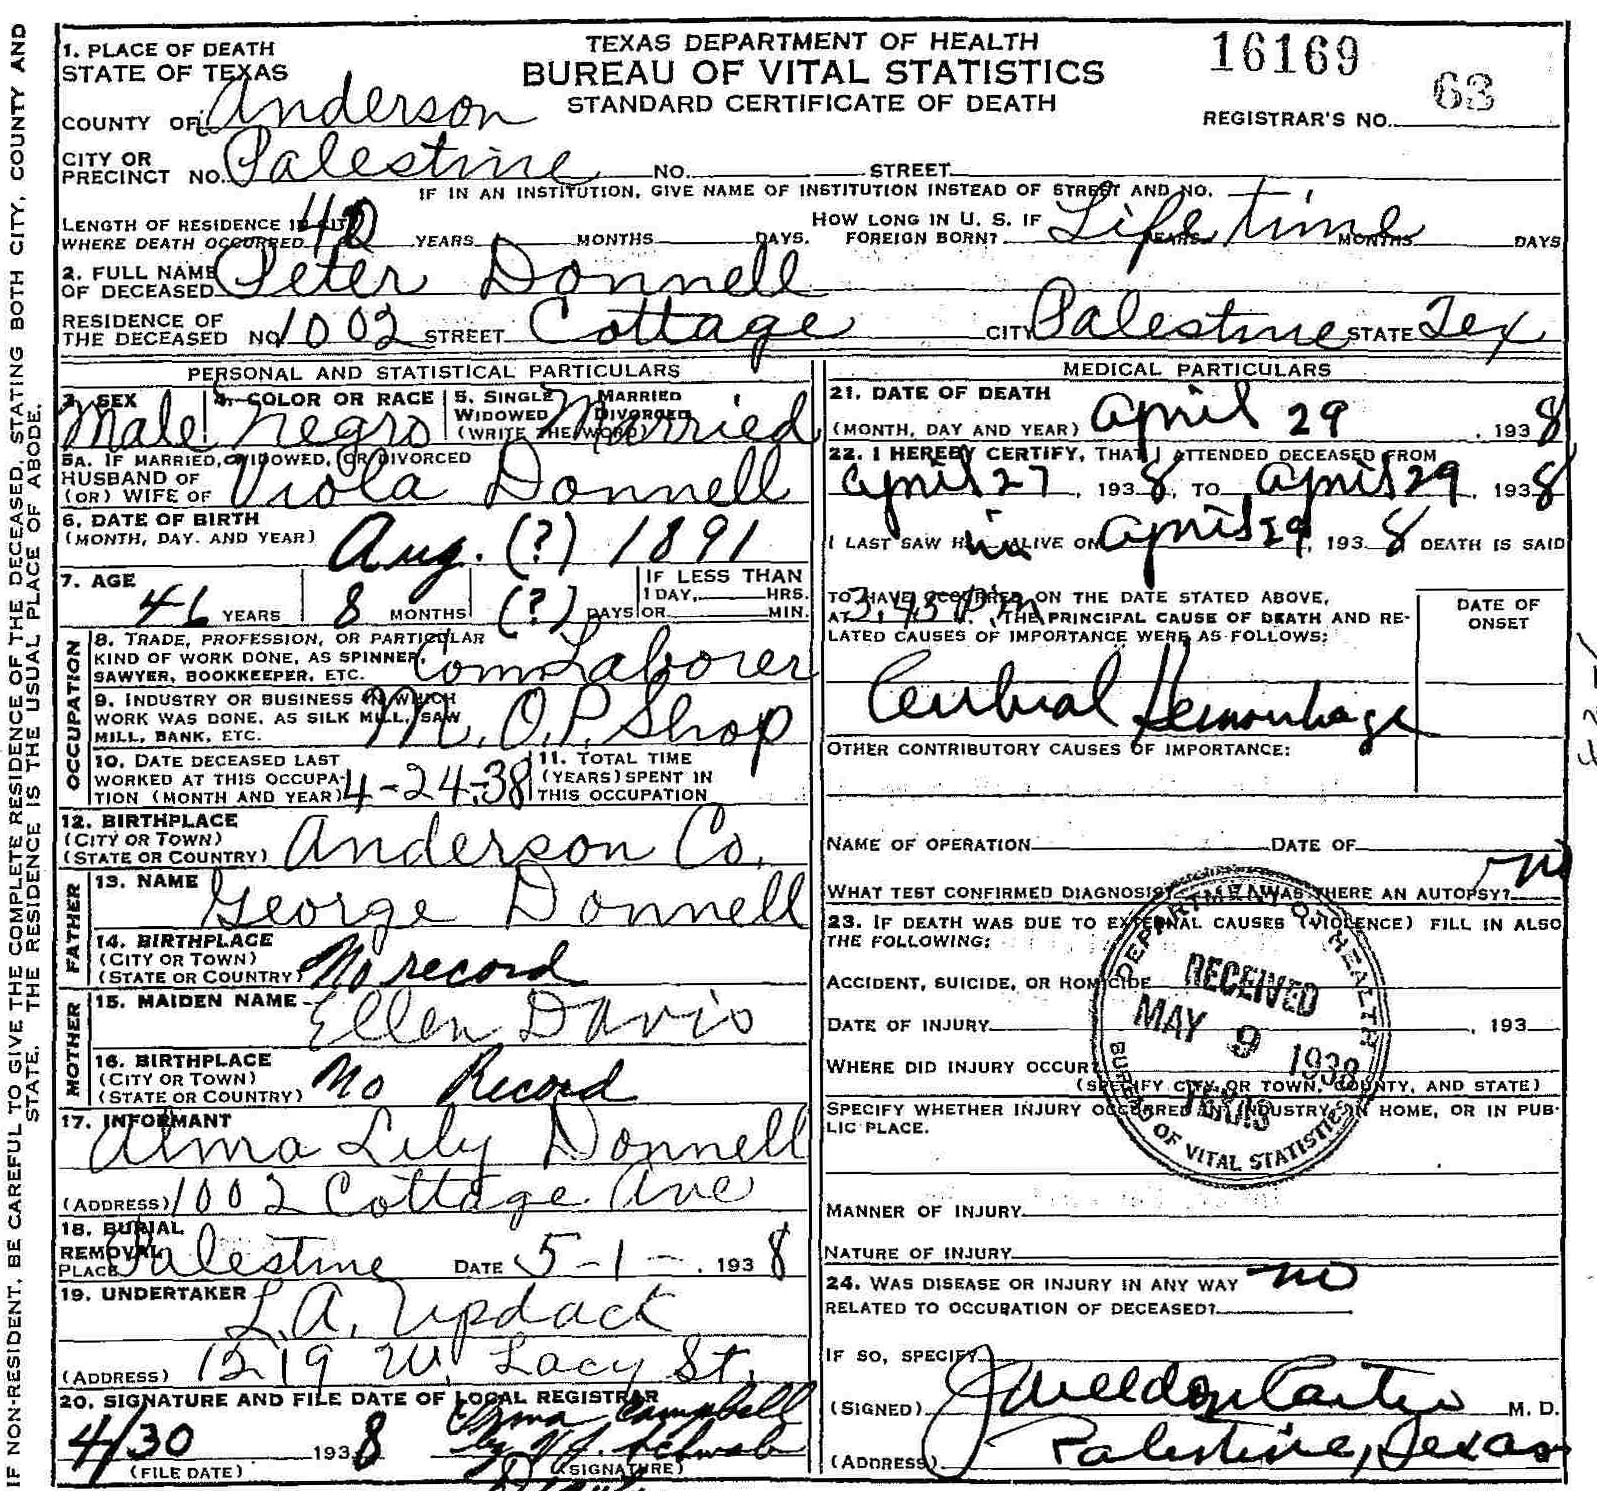 IF NON-RESIDENT, BE CAREFUL TO GIVE THE COMPLETE RESIDENCE OF THE DECEASED, STATING BOTH CITY, COUNTY AND
STATE. THE RESIDENCE IS THE USUAL PLACE OF ABODE.
1. PLACE OF DEATH
STATE OF TEXAS
TEXAS DEPARTMENT OF HEALTH
BUREAU OF VITAL STATISTICS
STANDARD CERTIFICATE OF DEATH
16169
63
REGISTRAR'S NO.
COUNTY OF Anderson
CITY OR
PRECINCT NO. Palestine NO. STREET
IF IN AN INSTITUTION, GIVE NAME OF INSTITUTION INSTEAD OF STREET AND NO.
LENGTH OF RESIDENCE IN CITY
WHERE DEATH OCCURRED 40 YEARS MONTHS DAYS. HOW LONG IN U. S. IF FOREIGN BORN? Life time YEARS MONTHS DAYS
2. FULL NAME
OF DECEASED Peter Donnell
RESIDENCE OF
THE DECEASED NO. 1002 STREET Cottage CITY Palestine STATE Tex
PERSONAL AND STATISTICAL PARTICULARS
3. SEX Male
4. COLOR OR RACE Negro
5. SINGLE MARRIED
WIDOWED DIVORCED
(WRITE THE WORD) Married
5A. IF MARRIED, WIDOWED, OR DIVORCED
HUSBAND OF
(OR) WIFE OF Viola Donnell
6. DATE OF BIRTH
(MONTH, DAY. AND YEAR) Aug. (?) 1891
7. AGE
46 YEARS 8 MONTHS (?) DAYS
IF LESS THAN
1 DAY, HRS.
OR MIN.
OCCUPATION
8. TRADE, PROFESSION, OR PARTICULAR
KIND OF WORK DONE, AS SPINNER,
SAWYER, BOOKKEEPER, ETC. Com Laborer
9. INDUSTRY OR BUSINESS IN WHICH
WORK WAS DONE, AS SILK MILL, SAW
MILL, BANK, ETC. M. O. P. Shop
10. DATE DECEASED LAST
WORKED AT THIS OCCUPA-
TION (MONTH AND YEAR) 4-24-38
11. TOTAL TIME
(YEARS) SPENT IN
THIS OCCUPATION
12. BIRTHPLACE
(CITY OR TOWN)
(STATE OR COUNTRY) Anderson Co.
FATHER
13. NAME George Donnell
14. BIRTHPLACE
(CITY OR TOWN)
(STATE OR COUNTRY) No record
MOTHER
15. MAIDEN NAME Ellen Davis
16. BIRTHPLACE
(CITY OR TOWN)
(STATE OR COUNTRY) No Record
17. INFORMANT
Alma Lily Donnell
(ADDRESS) 1002 Cottage Ave
18. BURIAL
REMOVAL
PLACE Palestine DATE 5-1-, 1938
19. UNDERTAKER
L.A. Updack
(ADDRESS) 1219 W. Lacy St.
20. SIGNATURE AND FILE DATE OF LOCAL REGISTRAR
4/30 1938 Erma Campbell
by V. J. Schwab
(FILE DATE) (SIGNATURE)
MEDICAL PARTICULARS
21. DATE OF DEATH
(MONTH, DAY AND YEAR) April 29, 1938
22. I HEREBY CERTIFY, THAT I ATTENDED DECEASED FROM
April 27, 1938, TO April 29, 1938
I LAST SAW him ALIVE ON April 29, 1938 DEATH IS SAID
TO HAVE OCCURRED ON THE DATE STATED ABOVE,
AT 3:45 P.m. THE PRINCIPAL CAUSE OF DEATH AND RE-
LATED CAUSES OF IMPORTANCE WERE AS FOLLOWS:
DATE OF
ONSET
Cerebral Hemorrhage
OTHER CONTRIBUTORY CAUSES OF IMPORTANCE:
NAME OF OPERATION DATE OF
WHAT TEST CONFIRMED DIAGNOSIS WAS THERE AN AUTOPSY? no
23. IF DEATH WAS DUE TO EXTERNAL CAUSES (VIOLENCE) FILL IN ALSO
THE FOLLOWING:
ACCIDENT, SUICIDE, OR HOMICIDE
DATE OF INJURY , 193
WHERE DID INJURY OCCUR?
(SPECIFY CITY OR TOWN, COUNTY, AND STATE)
SPECIFY WHETHER INJURY OCCURRED IN INDUSTRY, IN HOME, OR IN PUB-
LIC PLACE.
DEPARTMENT OF HEALTH
RECEIVED
MAY 9 1938
TEXAS
BUREAU OF VITAL STATISTICS
MANNER OF INJURY
NATURE OF INJURY
24. WAS DISEASE OR INJURY IN ANY WAY
RELATED TO OCCUPATION OF DECEASED? no
IF SO, SPECIFY
(SIGNED) J Weldon Carter M. D.
(ADDRESS) Palestine, Texas